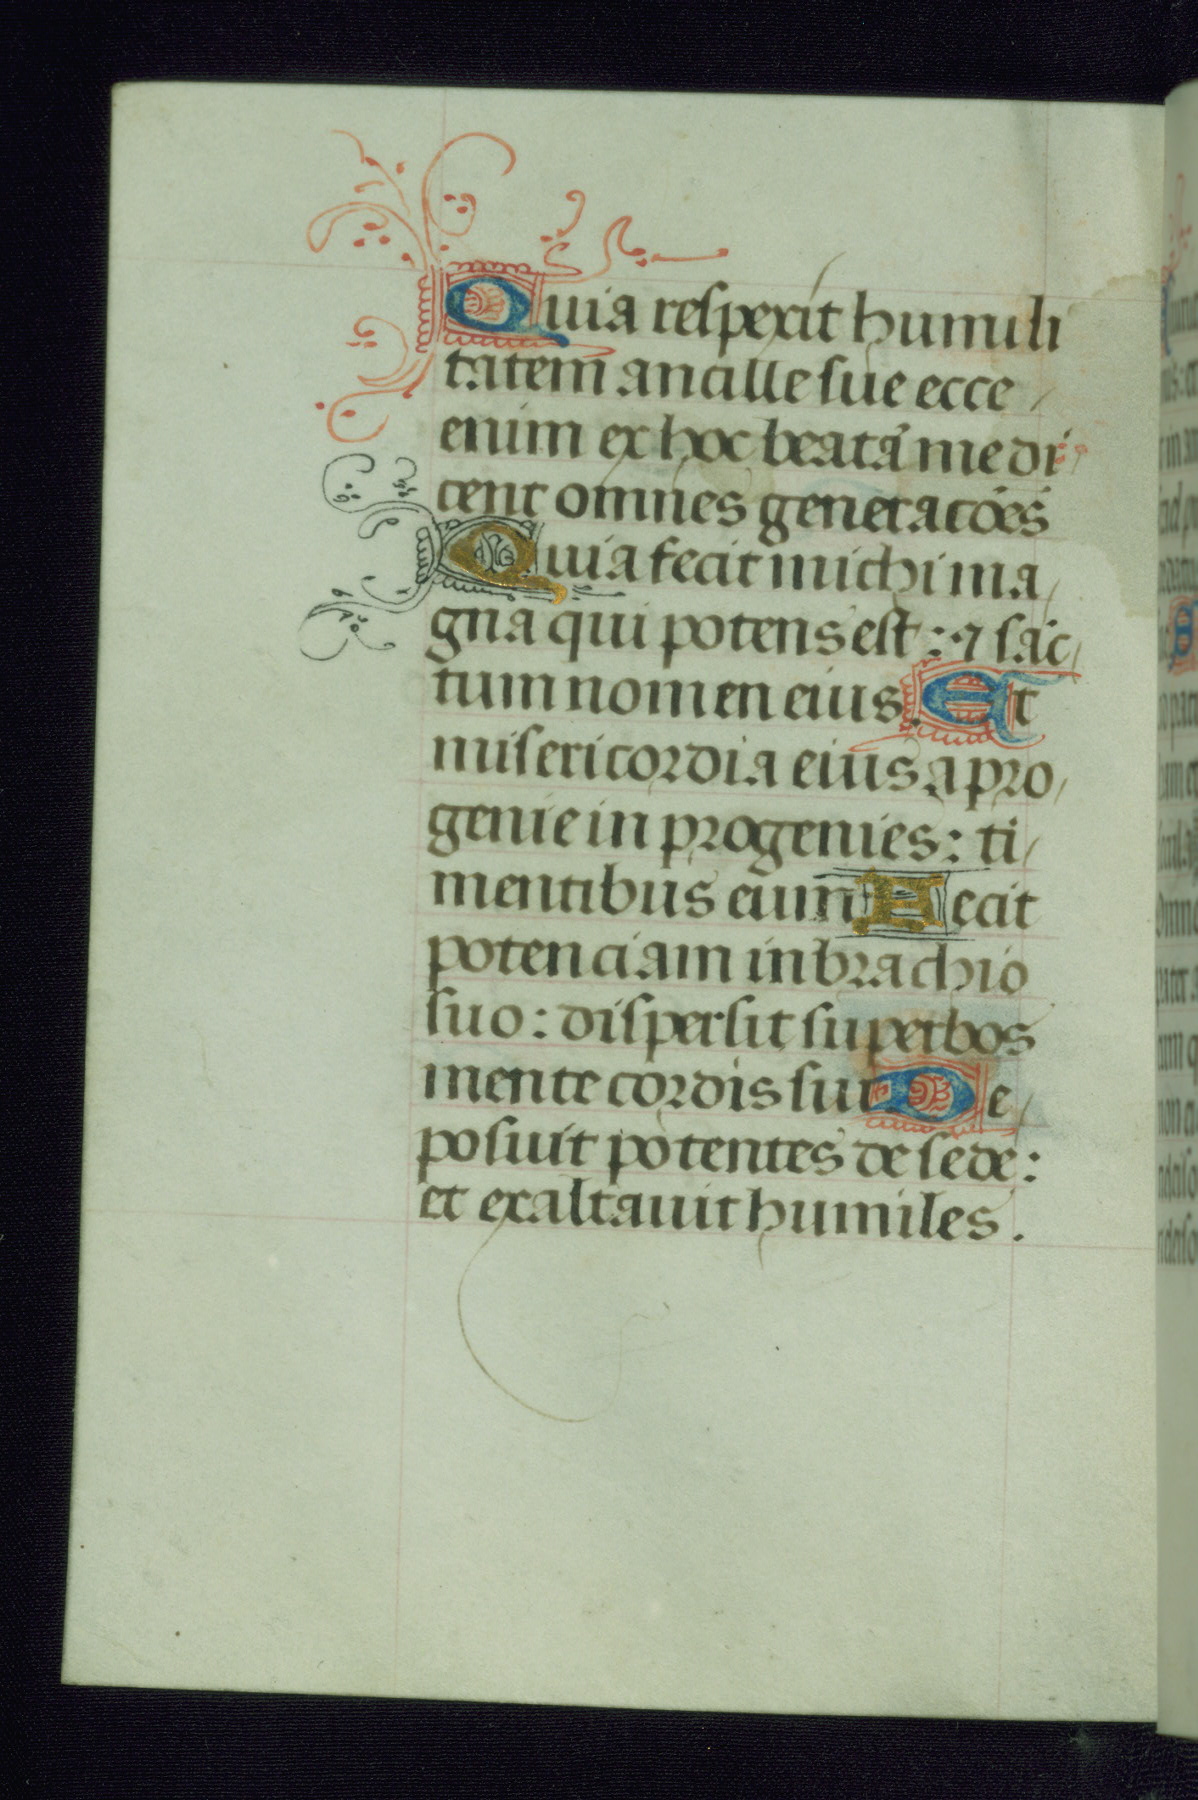 Quia respexit humili
tatem ancille sue ecce /
enim ex hoc beatā me di
cent omnes generacōes
Quia fecit michi ma/
gna qui potens est : ⁊ sāc/
tum nomen eius. Et
misericordia eius a pro/
genie in progenies : ti/
mentibus eum Fecit
potenciam in brachio
suo : dispersit superbos
mente cordis sui De/
posuit potentes de sede :
et exaltauit humiles .